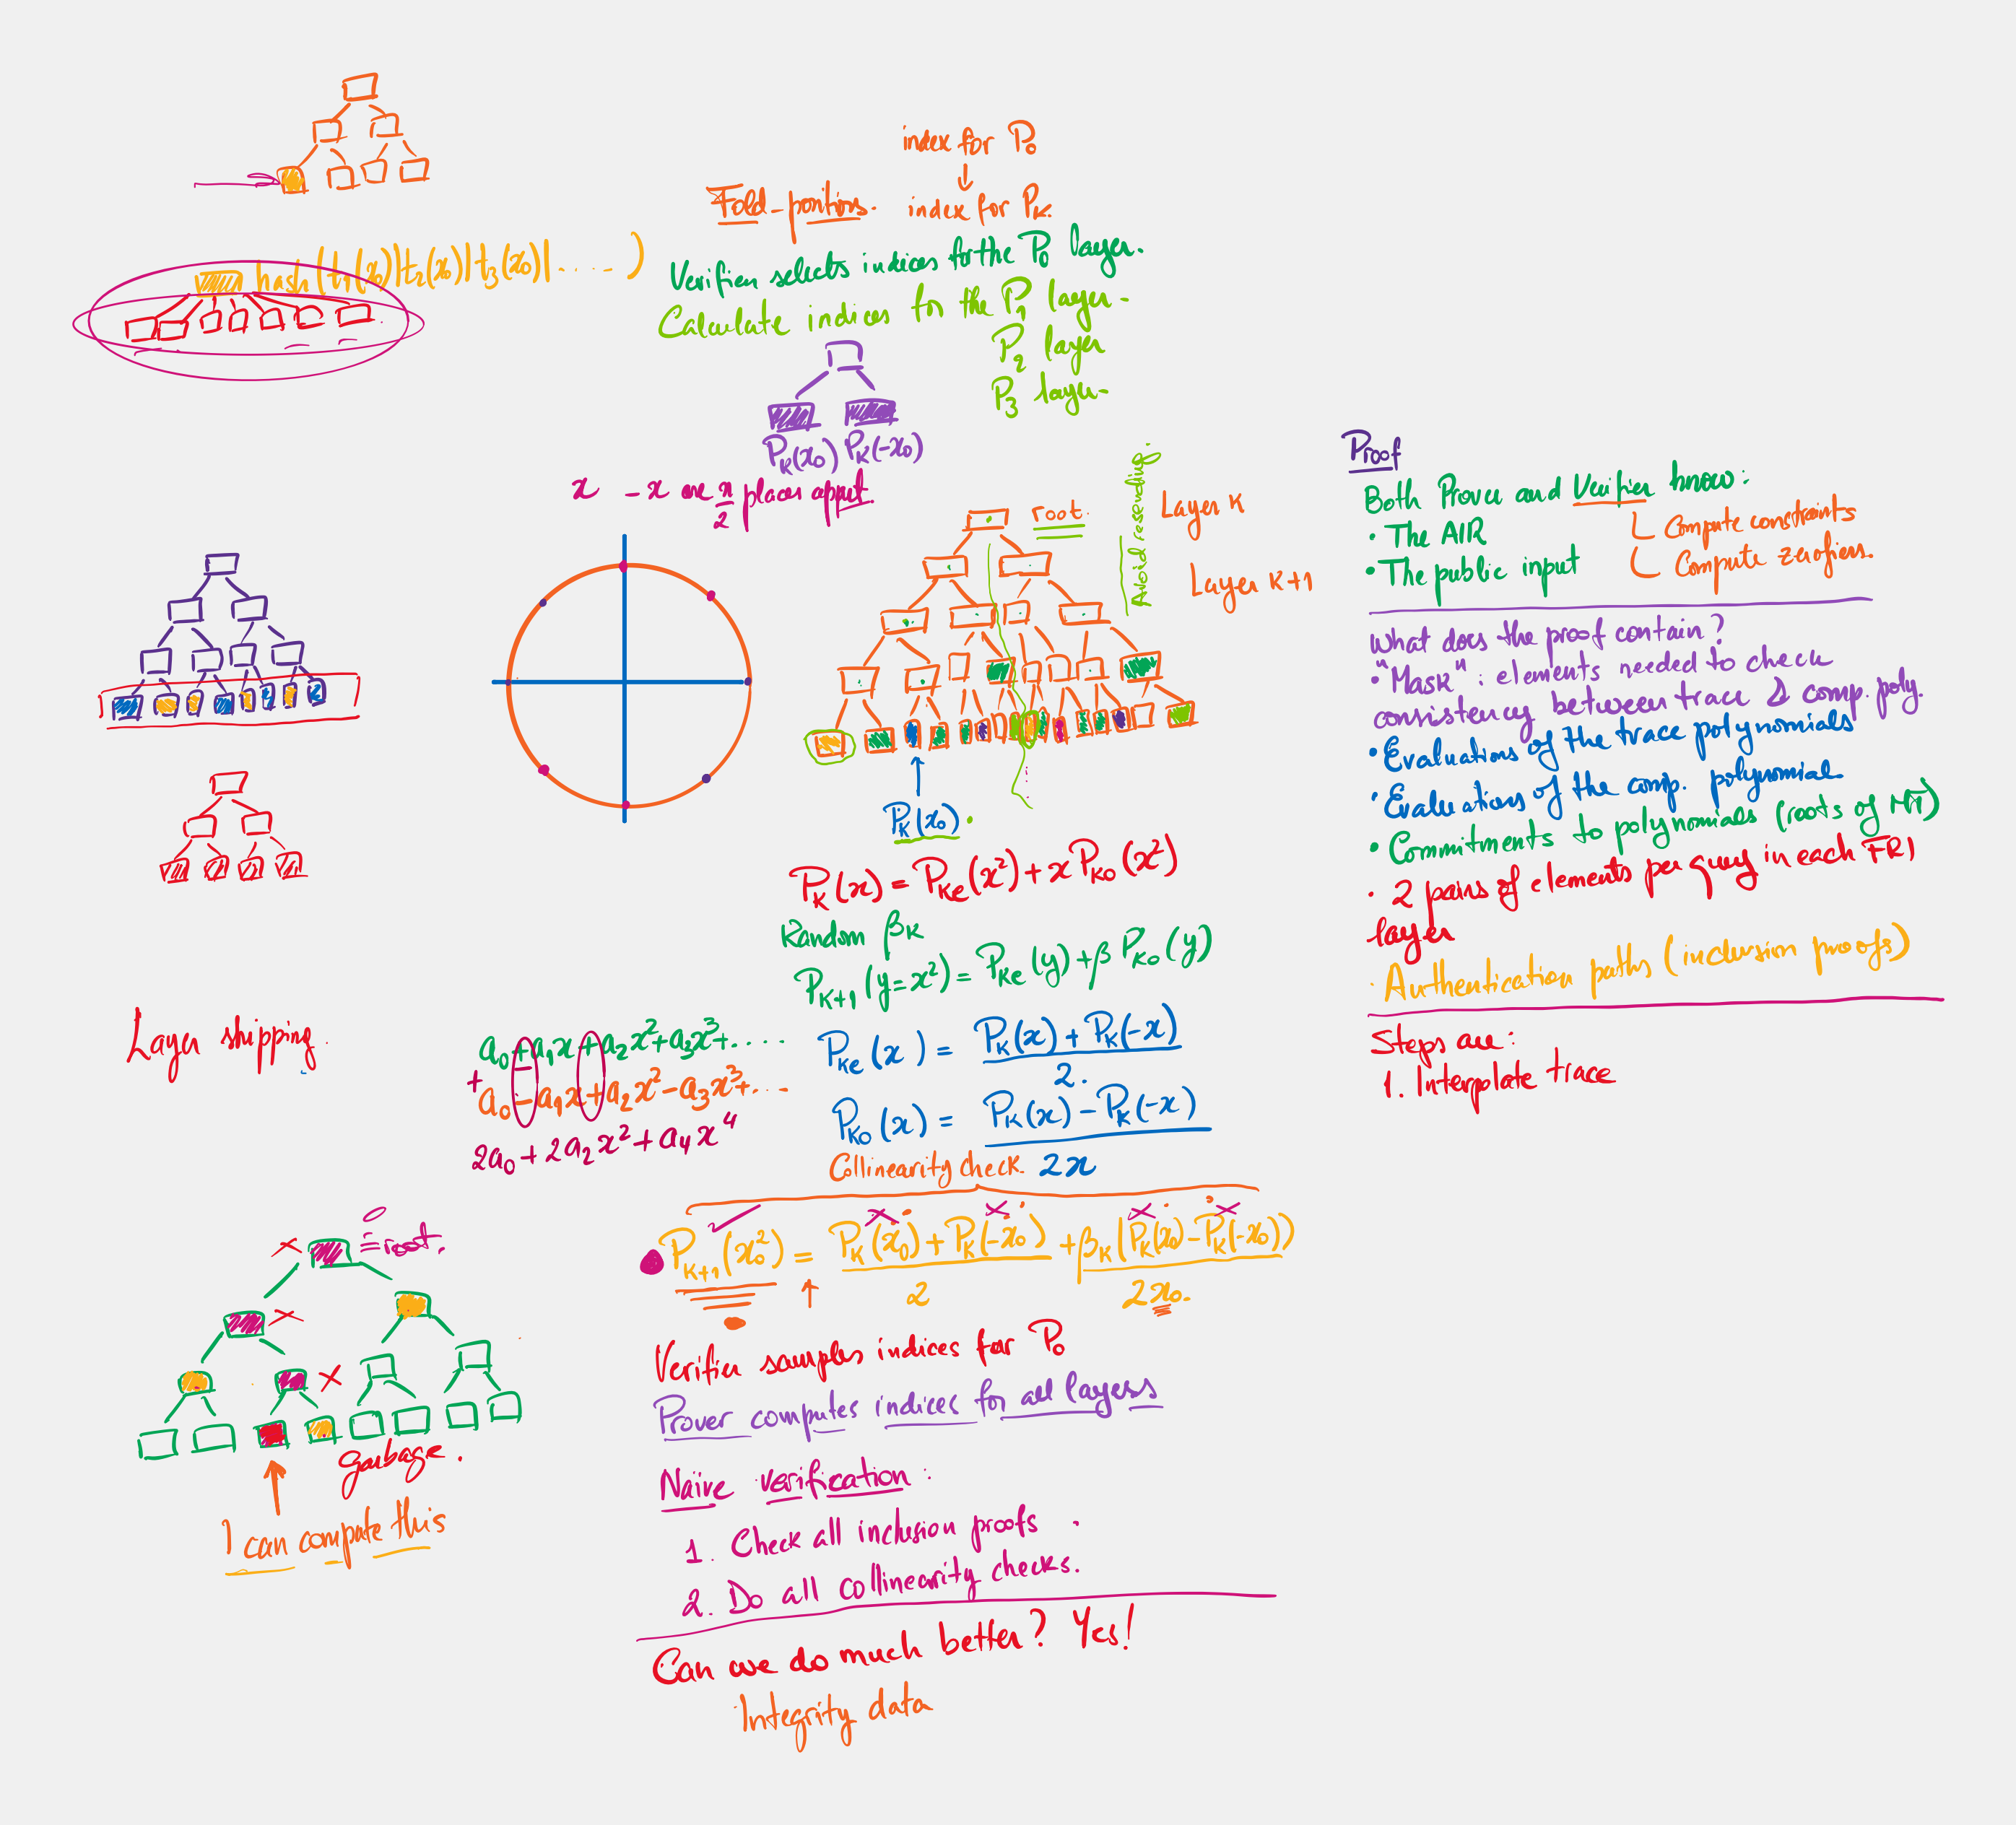 index for P₀
↓
Fold-positions. index for Pₖ.
hash(t₁(x₀)|t₂(x₀)|t₃(x₀)|.....)
Verifier selects indices for the P₀ layer.
Calculate indices for the P₁ layer.
P₂ layer
P₃ layer.
Pₖ(x₀) Pₖ(-x₀)
x -x are n/2 places apart.
root.
Avoid resending.
Layer K
Layer K+1
Pₖ(x₀).
Pₖ(x) = Pₖₑ(x²) + x Pₖₒ(x²)
Random βₖ
Pₖ₊₁(y=x²) = Pₖₑ(y) + β Pₖₒ(y)
Pₖₑ(x) = Pₖ(x) + Pₖ(-x) / 2.
Pₖₒ(x) = Pₖ(x) - Pₖ(-x) / 2x
Layer skipping.
a₀ + a₁x + a₂x² + a₃x³ + ....
+
a₀ - a₁x + a₂x² - a₃x³ + ...
2a₀ + 2a₂x² + a₄x⁴
Collinearity check.
Pₖ₊₁(x₀²) = Pₖ(x₀) + Pₖ(-x₀) / 2 + βₖ(Pₖ(x₀) - Pₖ(-x₀)) / 2x₀.
= root.
garbage.
I can compute this
Verifier samples indices for P₀
Prover computes indices for all layers
Naive verification:
1. Check all inclusion proofs.
2. Do all collinearity checks.
Can we do much better? Yes!
Integrity data
Proof
Both Prover and Verifier know:
• The AIR
• The public input
Compute constraints
Compute zerofiers.
What does the proof contain?
• "Mask": elements needed to check
consistency between trace & comp. poly.
• Evaluations of the trace polynomials
• Evaluations of the comp. polynomial
• Commitments to polynomials (roots of MT)
• 2 pairs of elements per query in each FRI
layer
• Authentication paths (inclusion proofs)
Steps are:
1. Interpolate trace